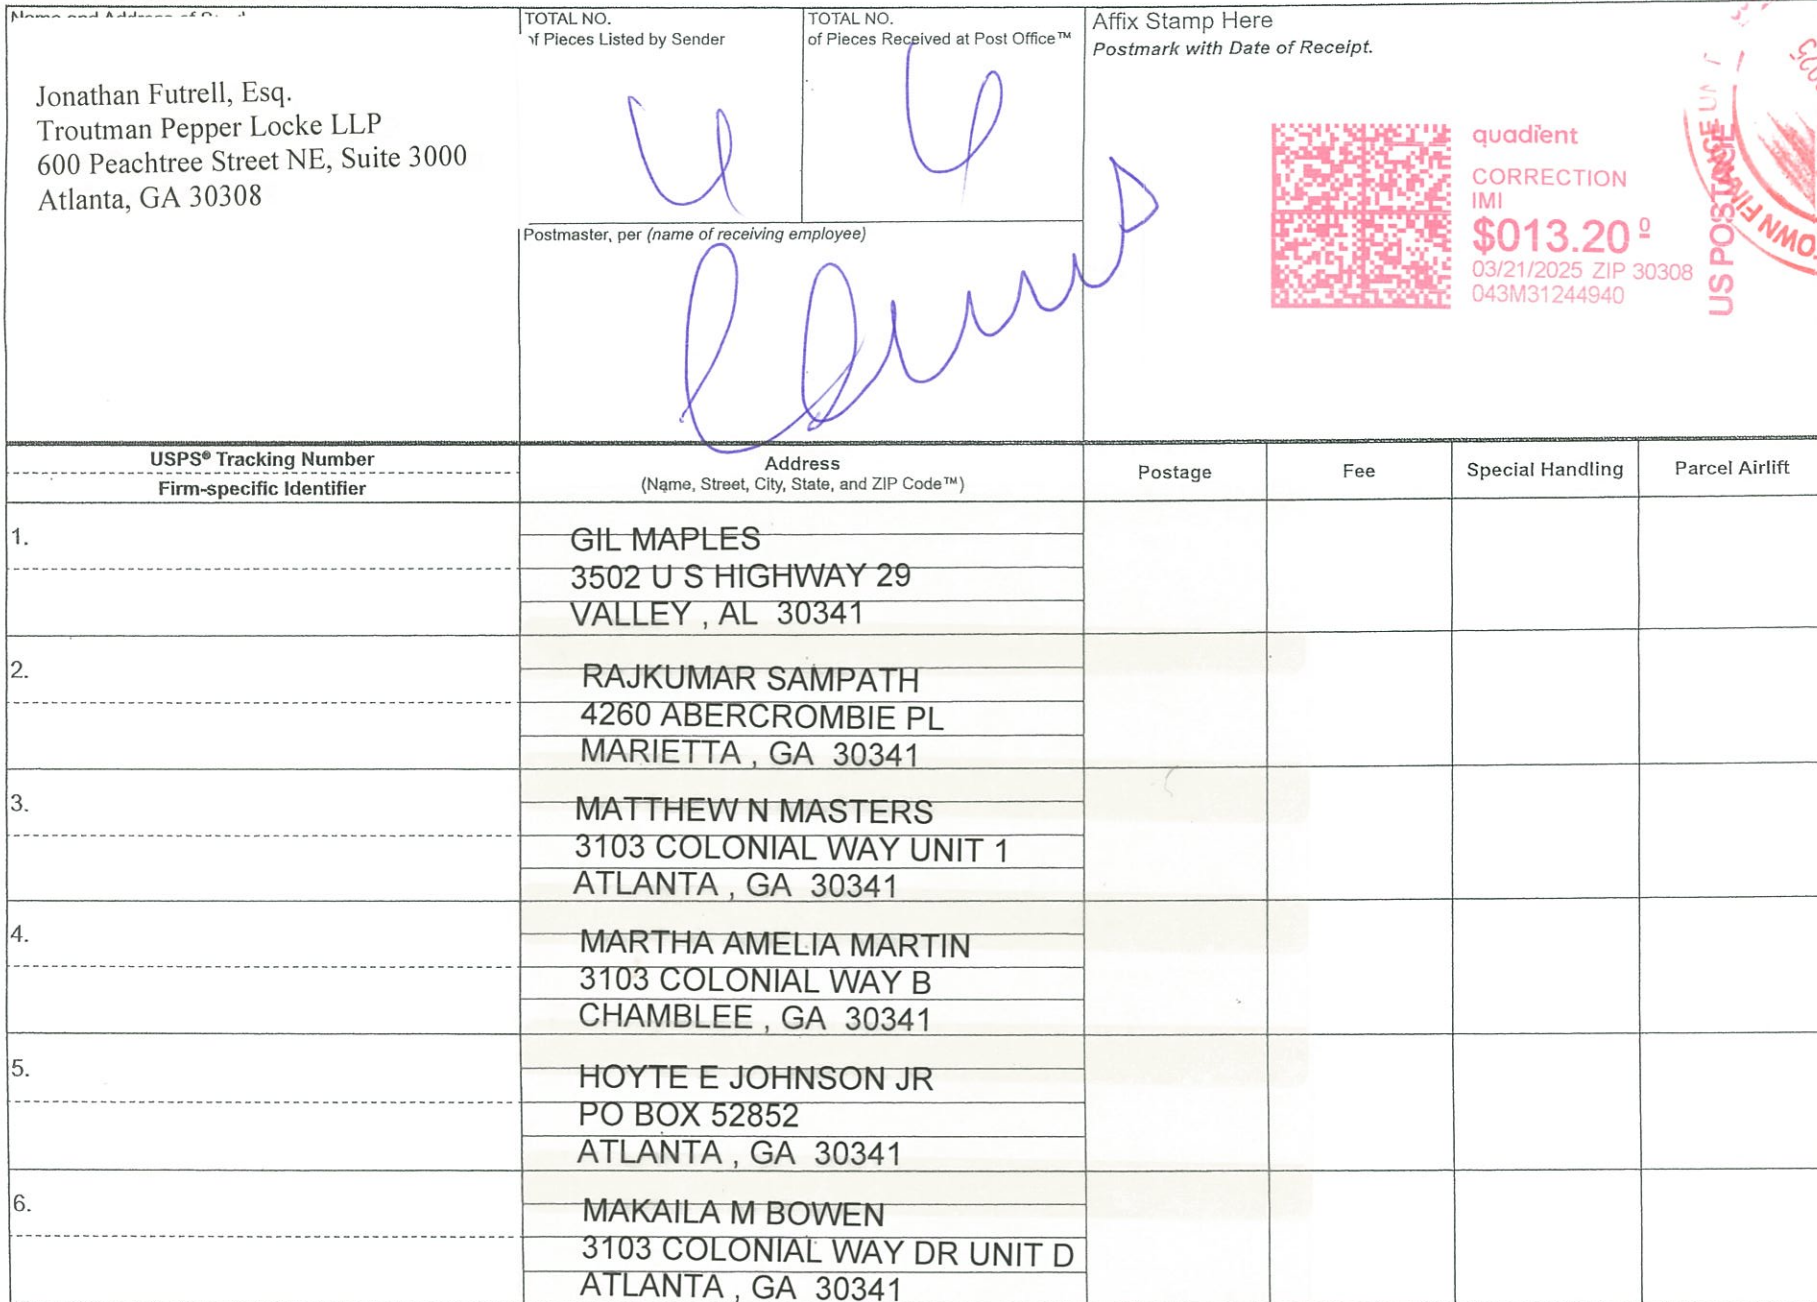 Name and Address of
Jonathan Futrell, Esq.
Troutman Pepper Locke LLP
600 Peachtree Street NE, Suite 3000
Atlanta, GA 30308
TOTAL NO.
of Pieces Listed by Sender
TOTAL NO.
of Pieces Received at Post Office™
Postmaster, per (name of receiving employee)
Affix Stamp Here
Postmark with Date of Receipt.
quadient
CORRECTION
IMI
$013.20 0
03/21/2025 ZIP 30308
043M31244940
US POSTAGE
USPS® Tracking Number
Firm-specific Identifier
Address
(Name, Street, City, State, and ZIP Code™)
Postage
Fee
Special Handling
Parcel Airlift
1.
GIL MAPLES
3502 U S HIGHWAY 29
VALLEY , AL 30341
2.
RAJKUMAR SAMPATH
4260 ABERCROMBIE PL
MARIETTA , GA 30341
3.
MATTHEW N MASTERS
3103 COLONIAL WAY UNIT 1
ATLANTA , GA 30341
4.
MARTHA AMELIA MARTIN
3103 COLONIAL WAY B
CHAMBLEE , GA 30341
5.
HOYTE E JOHNSON JR
PO BOX 52852
ATLANTA , GA 30341
6.
MAKAILA M BOWEN
3103 COLONIAL WAY DR UNIT D
ATLANTA , GA 30341